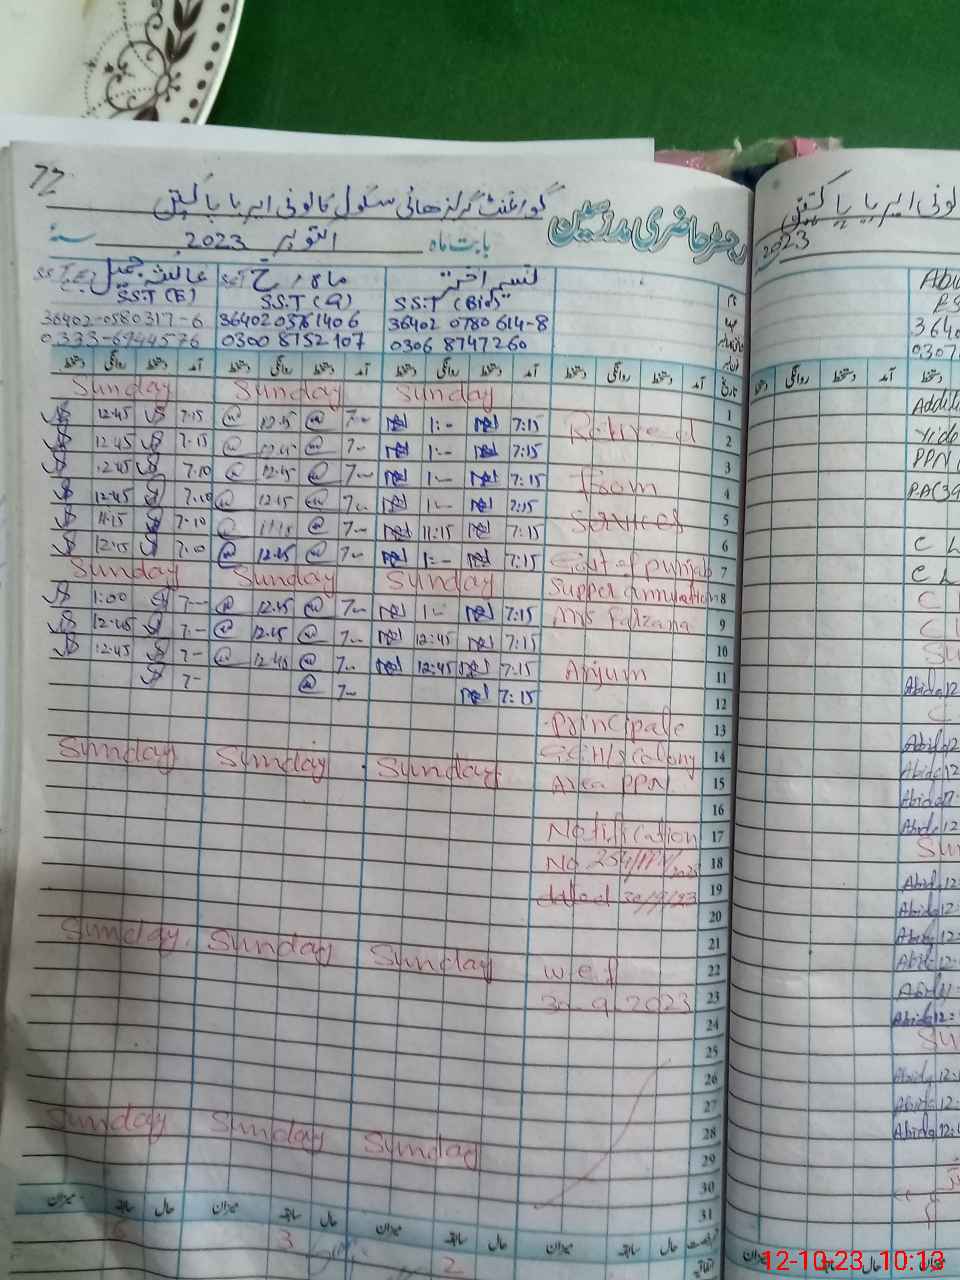 77
گورنمنٹ گرلز ہائی سکول کالونی ایریا پاکپتن
رجسٹر حاضری مدرسین
بابت ماہ اکتوبر 2023 سنہ
نسیم اختر
S.S.T (Bio)
36402 0780 614-8
0306 8747260
ماہ رخ
S.S.T (G)
36402 0361406
0300 8752 107
عائشہ جمیل
S.S.T (E)
36402-0580317-6
0333-6944576
تاریخ آمد دستخط روانگی دستخط آمد دستخط روانگی دستخط آمد دستخط روانگی دستخط آمد دستخط روانگی دستخط
1 Sunday Sunday Sunday
2 Retired 7:15 1:- 7:- 12:45 7:15 12:45
3 7:15 1:- 7:- 12:45 7:15 12:45
4 from 7:15 1:- 7:- 12:45 7:10 12:45
5 Services 7:15 1:- 7:- 12:45 7:10 12:45
6 7:15 11:15 7:- 11:15 7:10 11:15
7 Govt of punjab 7:15 1:- 7:- 12:45 7:10 12:45
8 Supper annuation Sunday Sunday Sunday
9 Mrs Farzana 7:15 1:- 7:- 12:45 7:- 1:00
10 7:15 12:45 7:- 12:45 7:- 12:45
11 Anjum 7:15 12:45 7:- 12:45 7:- 12:45
12 7:15 7:- 7:-
13 Principale
14 GGH/S Colony
15 Area PPN Sunday Sunday Sunday
16
17 Notification
18 No 254/PPN/2023
19 dated 30/9/23
20
21
22 w.e.f Sunday Sunday Sunday
23 30-9-2023
24
25
26
27
28
29 Sunday Sunday Sunday
30
31
اتفاقیہ حال سابقہ میزان حال سابقہ میزان حال سابقہ میزان حال سابقہ میزان
2 3 6
2023
Abid
364
0307
آمد دستخط روانگی دستخط
Additi
Vide
PPN
PA(39
C L
C L
C
C
Su
Abida 12
C
Abida 12
Abida 12
Abida
Abida 12
Su
Abida 12:
Abida 12:
Abida 12:
Abida 12:
Abida
Abida 12:
Su
Abida 12:
Abida 12:
Abida 12:
میزان سابقہ حال میزان
12-10-23 10:13